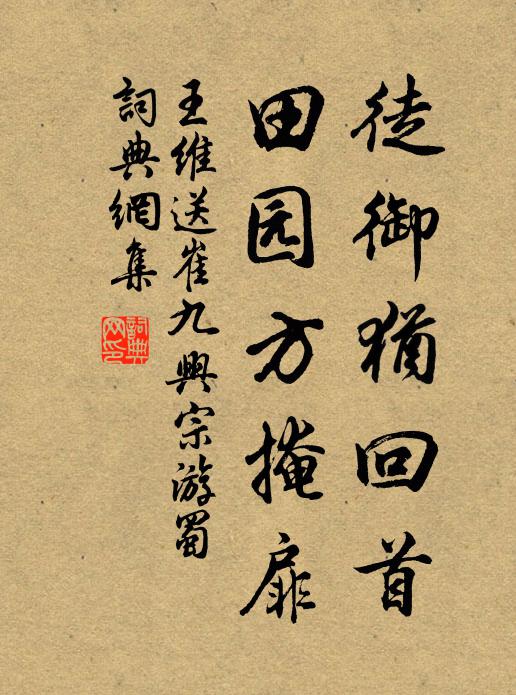 徒御犹回首
田园方掩扉
王維送崔九興宗游蜀
詞典網集
詞典网印